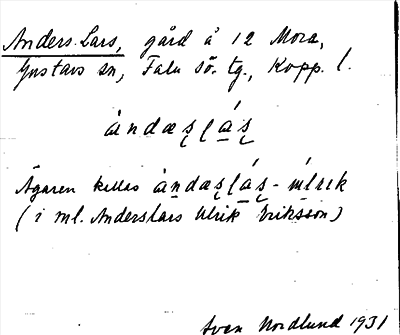 Anders-Lars, gård å 12 Mora,
Gustavs sn, Falu sö. tg., Kopp. l.
àndæʂḷáʂ
Ägaren kallas àndæʂḷáʂ-úlrɪk
(i ml. Anderslars Ulrik Eriksson)
Sven Nordlund 1931